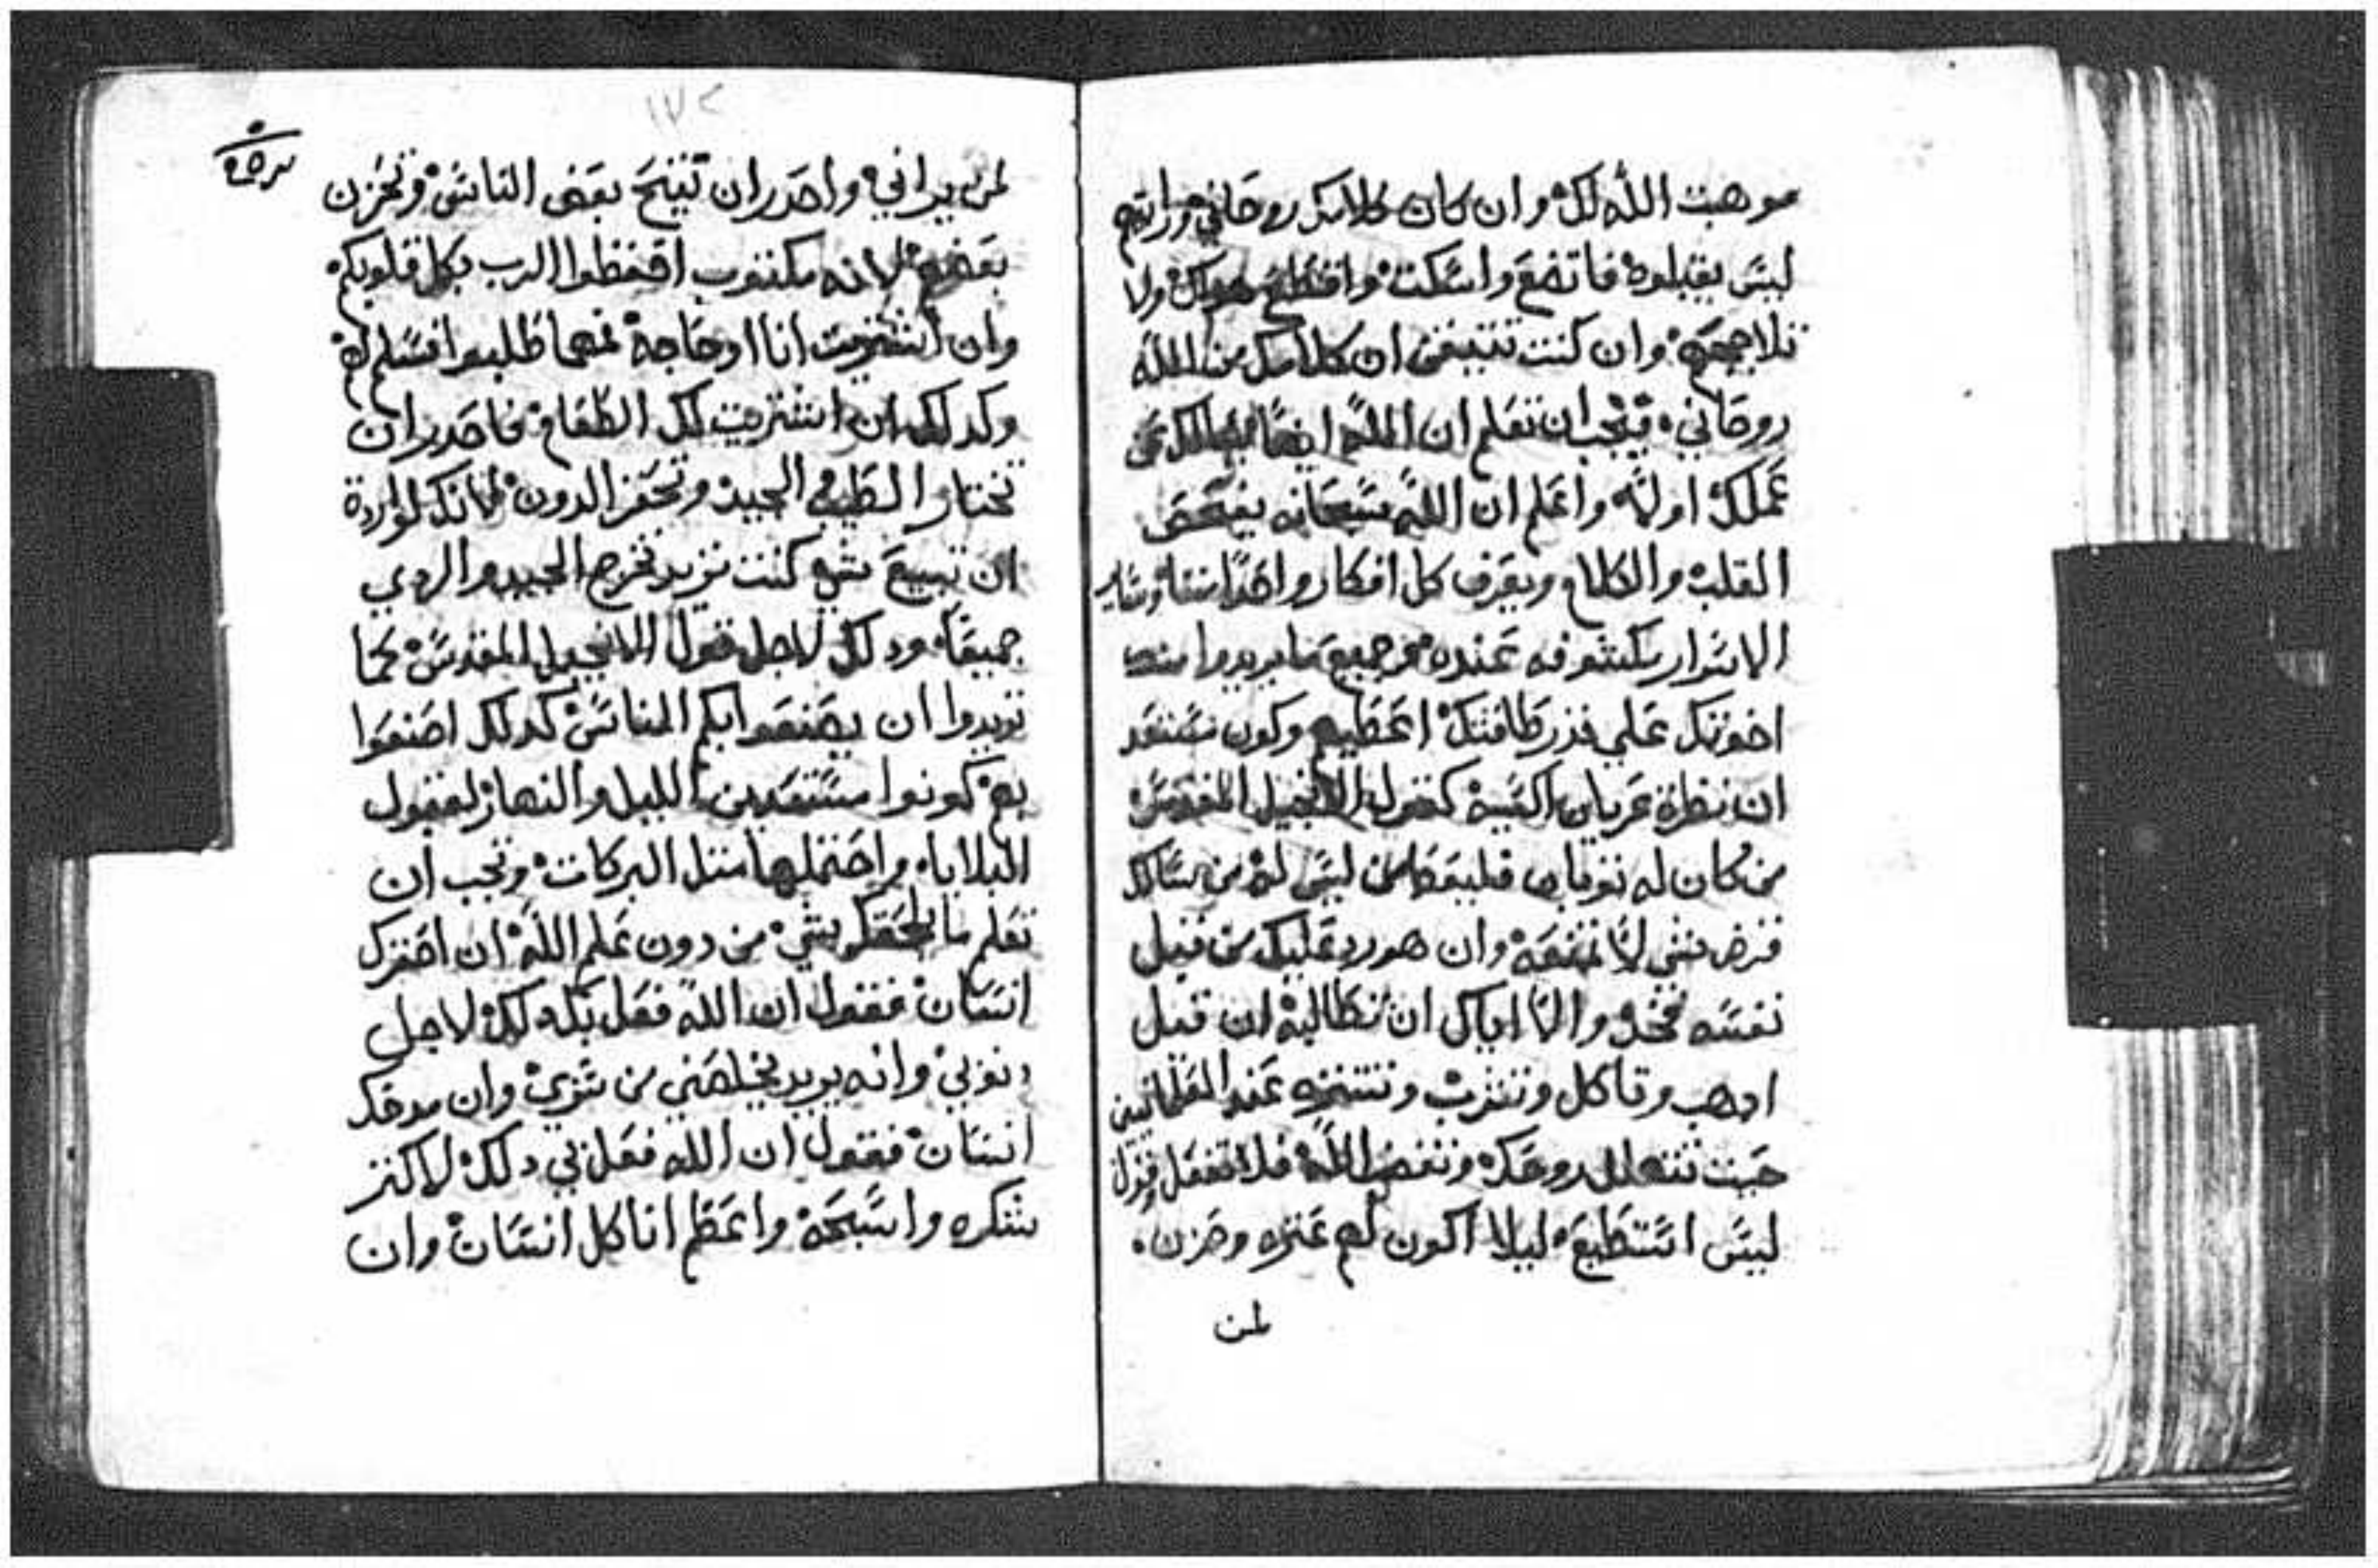 موهبت الله لك وان كان كلامك روحاني ورايتهم
ليس يقبلوه فاتضع واسكت واقطع هواك ولا
تلاججهم وان كنت تتيقن ان كلامك من الله
روحاني فيجب ان تعلم ان الله ايضا
عملك اولا واعلم ان الله سبحانه يفحص
القلب والكلام ويعرف كل افكار واحدا منا وساير
الاسرار مكشوفه عنده وجميع ما يريدوا منك
اخوتك علي قدر طاقتك اعطيهم وكون مستعد
ان نظرة عريان اكسيه كقول الانجيل المقدس
من كان له ثوبان فليعط من ليس له من سالك
قرض شي لا تمنعه وان هو رد عليك من قبل
نفسه فخد والا اياك ان تطالبه ان قيل
ادهب وتاكل وتشرب وتتنزه عند العلمانيين
حيت تتهلل روحك وتغضب الله فلا تفعل وقول
ليس استطيع ليلا اكون لهم عتره وحزن
لمن
١٧٢
لمن يراني واحدر ان تنيح بعض الناس وتحزن
بعضهم لانه مكتوب احفظوا الرب بكل قلوبكم
وان اشتريت انا او حاجة فمهما طلبوا فسلم له
وكدلك ان اشتريت لك الطعام فاحدر ان
تختار الطيب الجيد وتحقر الدون فانك لو اردة
ان تبيع شي كنت تريد تخرج الجيد والردي
جميعا ودلك لاجل قول الانجيل المقدس كما
تريدوا ان يصنعوا بكم الناس كدلك اصنعوا
بهم كونوا مستعدين الليل والنهار لقبول
البلايا واحتملها متل البركات ويجب ان
تعلم ما يلحقك بشي من دون علم الله ان احقرك
انسان فقول ان الله فعل بك دلك لاجل
دنوبي وانه يريد يخلصني من شري وان مدحك
انسان فقول ان الله فعل بي دلك لاكتر
شكره واسبحه واعظم انا كل انسان وان